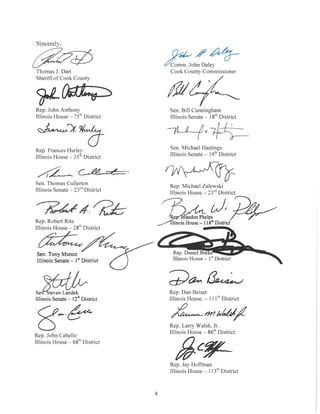 Sincerely,
Thomas J. Dart
Sheriff of Cook County
Comm. John Daley
Cook County Commissioner
Rep. John Anthony
Illinois House – 75th District
Sen. Bill Cunningham
Illinois Senate – 18th District
Rep. Frances Hurley
Illinois House – 35th District
Sen. Michael Hastings
Illinois Senate – 19th District
Sen. Thomas Cullerton
Illinois Senate – 23rd District
Rep. Michael Zalewski
Illinois House – 23rd District
Rep. Robert Rita
Illinois House – 28th District
Rep. Brandon Phelps
Illinois House – 118th District
Sen. Tony Munoz
Illinois Senate – 1st District
Rep. Daniel Burke
Illinois House – 1st District
Sen. Steven Landek
Illinois Senate – 12th District
Rep. Dan Beiser
Illinois House – 111th District
Rep. John Cabello
Illinois House – 68th District
Rep. Larry Walsh, Jr.
Illinois House – 86th District
Rep. Jay Hoffman
Illinois House – 113th District
4